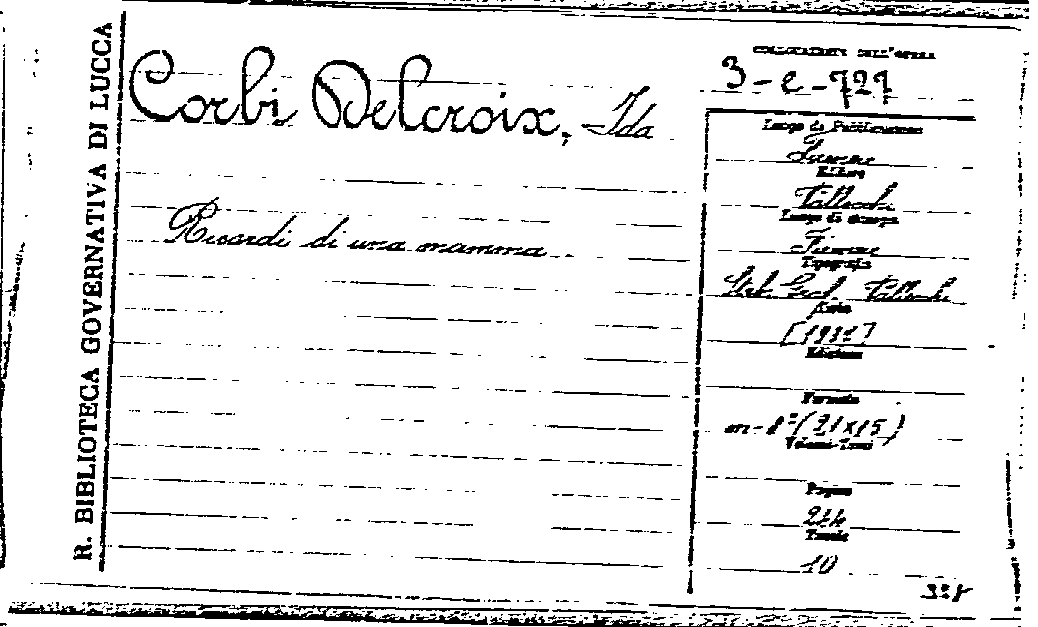 R. BIBLIOTECA GOVERNATIVA DI LUCCA
Corbi Delcroix, Ida
Ricordi di una mamma
COLLOCAZIONE DELL'OPERA
3-e-727
Luogo di Pubblicazione
Firenze
Editore
Vallecchi
Luogo di stampa
Firenze
Tipografia
Stab. Graf. Vallecchi
Data
Edizione
Formato
in-8° (21x15)
Volumi-Tomi
Pagine
Tavole
10